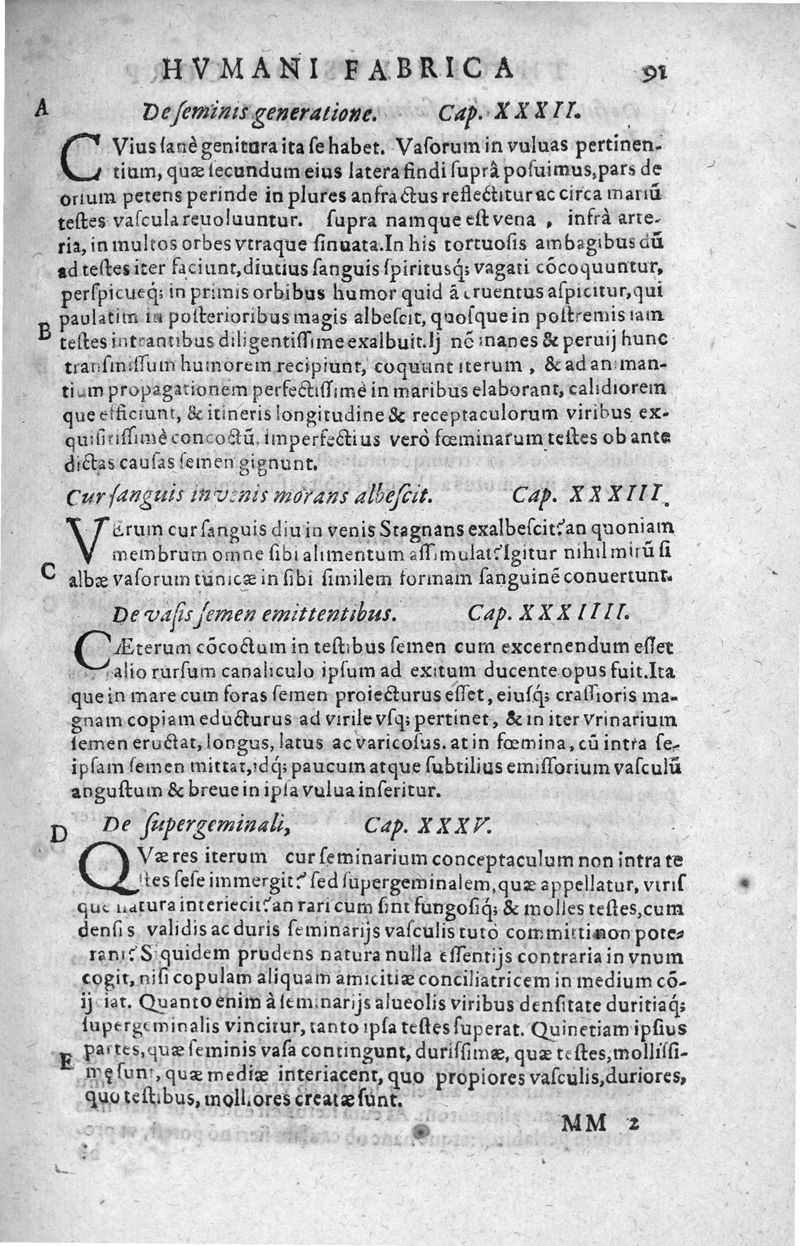 HVMANI FABRICA 91
A De ſeminis generatione. Cap. XXXII.
CVius ſanè genitura ita ſe habet. Vaſorum in vuluas pertinen-
tium, quæ ſecundum eius latera findi ſuprà poſuimus, pars de
orſum petens perinde in plures anfractus reflectitur ac circa mariũ
teſtes vaſcula reuoluuntur. ſupra namque eſt vena , infrà arte-
ria, in multos orbes vtraque ſinuata. In his tortuoſis ambagibus dũ
ad teſtes iter faciunt, diutius ſanguis ſpiritusq́; vagati cõcoquuntur,
perſpicueq́; in primis orbibus humor quidã cruentus aſpicitur, qui
paulatim in poſterioribus magis albeſcit, quoſque in poſtremis iam
B teſtes intrantibus diligentiſſime exalbuit. Ij nẽ inanes & peruij hunc
tranſmiſſum humorem recipiunt, coquunt iterum , & ad animan-
tium propagationem perfectiſſimè in maribus elaborant, calidiorem
que efficiunt, & itineris longitudine & receptaculorum viribus ex-
quiſitiſſimè concoctũ, imperfectius verò fœminarum teſtes ob ante
dictas cauſas ſemen gignunt.
Cur ſanguis in venis morans albeſcit. Cap. XXXIII.
VErum cur ſanguis diu in venis Stagnans exalbeſcit? an quoniam
membrum omne ſibi alimentum aſſimulat? Igitur nihil mirũ ſi
C albæ vaſorum tunicæ in ſibi ſimilem formam ſanguinẽ conuertunt.
De vaſis ſemen emittentibus. Cap. XXXIIII.
CÆterum cõcoctum in teſtibus ſemen cum excernendum eſſet
alio rurſum canaliculo ipſum ad exitum ducente opus fuit. Ita
que in mare cum foras ſemen proiecturus eſſet, eiuſq́; craſſioris ma-
gnam copiam educturus ad virile vſq; pertinet, & in iter vrinarium
ſemen eructat, longus, latus ac varicoſus. at in fœmina, cũ intra ſe-
ipſam ſemen mittat, idq́; paucum atque ſubtilius emiſſorium vaſculũ
anguſtum & breue in ipſa vulua inſeritur.
D De ſupergeminali, Cap. XXXV.
QVæ res iterum cur ſeminarium conceptaculum non intra te
ſtes ſeſe immergit? ſed ſupergeminalem, quæ appellatur, vtriſ
que natura interiecit? an rari cum ſint fungoſiq́; & molles teſtes, cum
denſis validis ac duris ſeminarijs vaſculis tuto committi non pote-
rant? Siquidem prudens natura nulla eſſentijs contraria in vnum
cogit, niſi copulam aliquam amicitiæ conciliatricem in medium cõ-
ijciat. Quanto enim à ſeminarijs alueolis viribus denſitate duritiaq́;
ſupergeminalis vincitur, tanto ipſa teſtes ſuperat. Quinetiam ipſius
E partes, quæ ſeminis vaſa contingunt, duriſſimæ, quæ teſtes, molliſſi-
mę ſunt, quæ mediæ interiacent, quo propiores vaſculis, duriores,
quo teſtibus, molliores creatæ ſunt.
MM 2